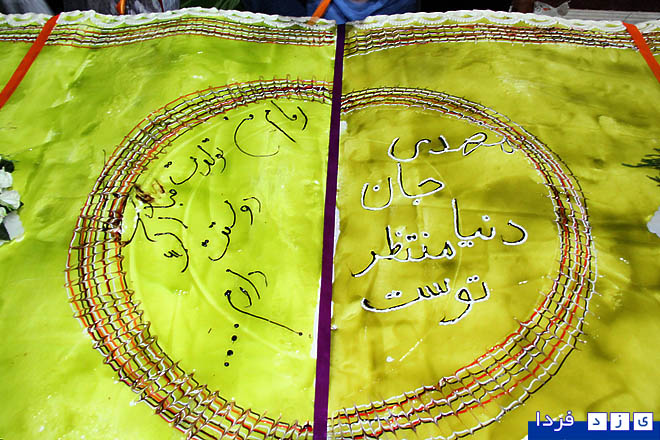 مهدی
جان
دنیا منتظر
توست
امام من
تولدت مبارک
دوستت
دارم...
یزد فردا